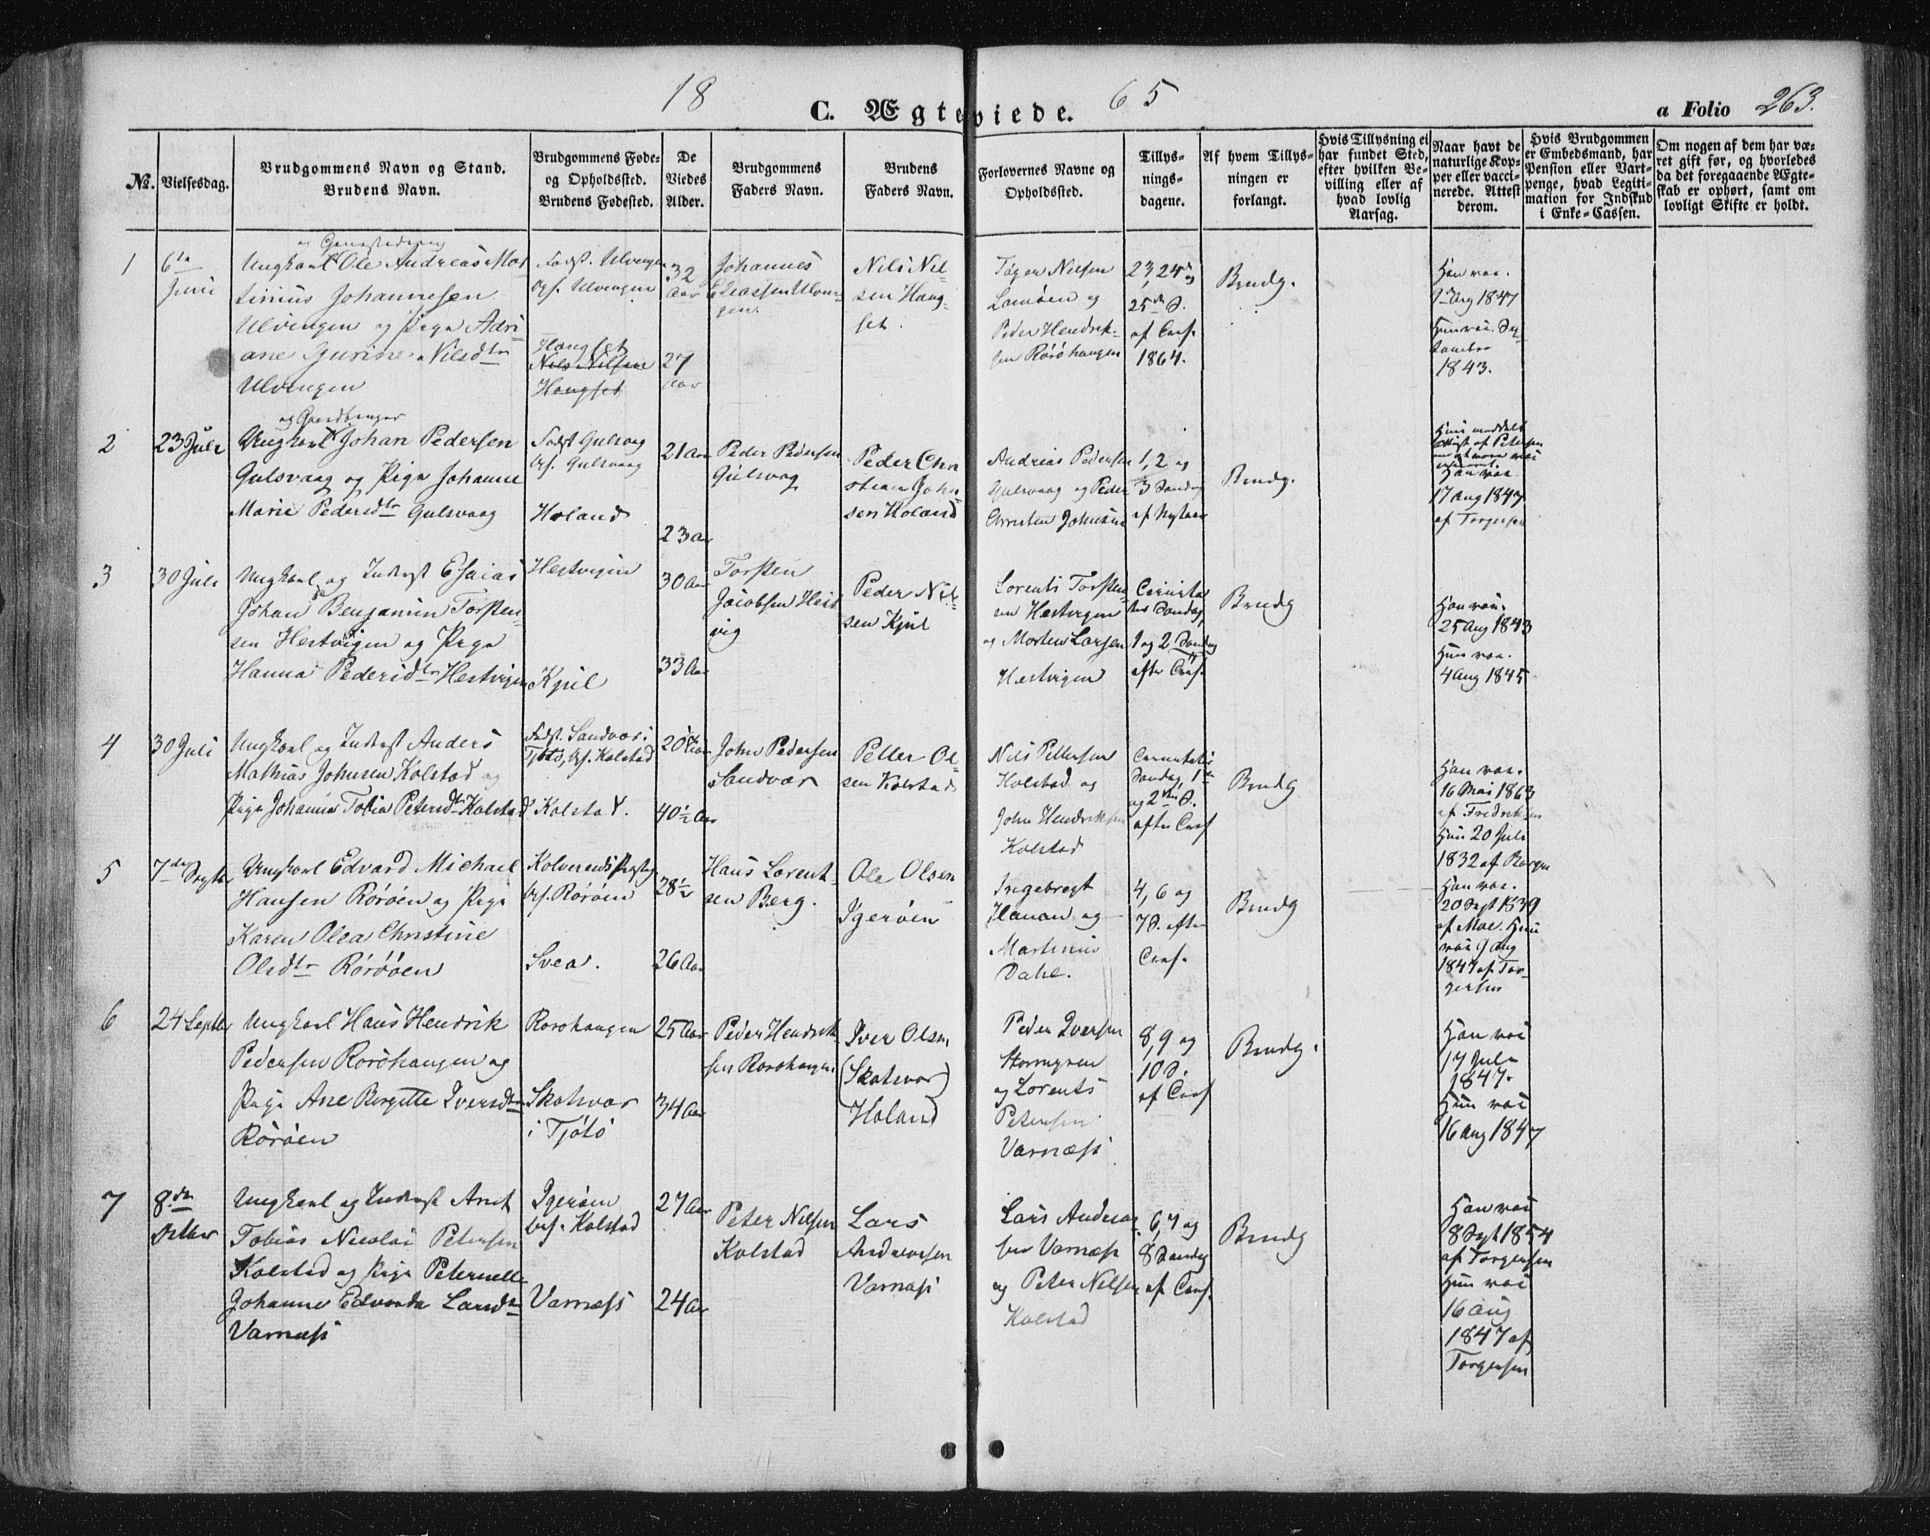 18 65
C. Ægteviede.
a Folio 263.
No.
Vielsesdag.
Brudgommens Navn og Stand.
Brudens Navn.
Brudgommens Føde-
og Opholdssted.
Brudens Fødested.
De
Viedes
Alder.
Brudgommens
Faders Navn.
Brudens
Faders Navn.
Forlovernes Navne og
Opholdssted.
Tillys-
nings-
dagene.
Af hvem Tillys-
ningen er
forlangt.
Hvis Tillysning ei
har fundet Sted,
efter hvilken Be-
villing eller af
hvad lovlig
Aarsag.
Naar havt de
naturlige Kop-
per eller vacci-
nerede. Attest
derom.
Hvis Brudgommen
er Embedsmand, har
Pension eller Vart-
penge, hvad Legiti-
mation for Indskud
i Enke-Cassen.
Om nogen af dem har væ-
ret gift før, og hvorledes
da det foregaaende Ægte-
skab er ophørt, samt om
lovligt Skifte er holdt.
1
6te
Juni
og
Ungkarl Ole Andreas Mar
tinius Johannesen
Ulvingen og Pige Adri
ane Gurine Nilsdtr
Ulvingen
Født. Ulvingen
bs. Ulvingen
Haugset
Nils Nilsen
Haugset
32
Aar
27
Aar
Johannes
Eliassen Ulvin
gen
Nils Nil-
sen Haug-
set.
Tøger Nilsen
Lamøen og
Peder Hendrik-
sen Rørøhaugen
23, 24de og
25de S.
af Tref.
1864.
Brudg.
Han vac.
9de Aug 1847
Hun vac. Sep
tember
1843.
2
23 Juli
og Gaardbruger
Ungkarl Johan Pedersen
Gulsvaag og Pige Johanne
Marie Pedersdtr Gulsvaag
Født Gulsvaag
bs. Gulsvaag
Høland
21 Aar
23 Aar
Peder Pedersen
Gulsvag
Peder Chri
stian John
sen Høland
Andreas Pedersen
Gulsvaag og Peder
Christen Johnsen
1, 2 og
3 Søndag
af Nytaar
Brudg.
Han vac.
17 Aug 1847
af Torgersen
3
30 Juli
Ungkarl og Inderst Esaias
Johan Benjamin Torsten-
sen Hestvigen og Pige
Hanna Pedersdtr Hestvigen
Hestvigen
Kjul
30 Aar
33 Aar
Torsten
Jacobsen Hest
vig
Peder Nil-
sen Kjul
Lorents Torsten-
sen Hestvigen
og Morten Larsen
Hestvigen
Søndag
1 og 2 Søndag
efter Tref.
Brudg
Han vac.
25 Aug 1843
Hun vac.
4 Aug 1845
4
30 Juli
Ungkarl og Inderst Anders
Mathias Johnsen Kolstad og
Pige Johanna Tobia Petersdtr Kolstad
Født. Sandvær i
Tjøtø, bs. Kolstad
Kolstad.
40½ Aar
John Pedersen
Sandvær
Petter Ol-
sen Kolstad
Nils Pettersen
Kolstad og
John Hendriksen
Kolstad
Søndag, 1ste
og 2den S.
efter Tref
Brudg
Han vac.
16 Mai 1863
af Fredriksen
Hun 20 Juli
1832 af Borgen
5
7de Septbr
Ungkarl Edvard Michael
Hansen Rørøen og Pige
Karen Olea Christine
Olsdtr Rørøen
Kolvereids Prstg
bs. Rørøen
Svea.
28½
26 Aar
Hans Lorent-
sen Berg.
Ole Olsen
Igerøen
Ingebregt
Hanan og
Martinus
Dahl.
4, 6 og
7 S. efter
Tref.
Brudg
Han vac.
20 Sept 1839
af Moe. Hun
vac 9 Aug
1847 af Tor-
gersen
6
24 Septbr
Ungkarl Hans Hendrik
Pedersen Rorøhaugen og
Pige Ane Bergitte Iversdtr
Rørøen
Rorøhaugen
Skohvær
i Tjøtø
25 Aar
34 Aar
Peder Hendrik
sen Rorøhaugen
Iver Olsen
(Skohvær)
Høland
Peder Iversen
og Lorents
Petersen
Varnæss
8, 9 og
10 S.
af Tref
Brudg.
Han vac
17 Juli
1847.
Hun vac
16 Aug 1847
7
8de
Octbr
Ungkarl og Inderst Arnt
Tobias Nicolai Petersen
Kolstad og Pige Peternelle
Johanne Edvarda Larsdtr
Varnæss
Igerøen
bs. Kolstad
Varnæss
27 Aar
24 Aar
Peter Nilsen
Kolstad
Lars
Andersen
Varnæss
Lars Anders
sen Varnæss
og Peter Nilsen
Kolstad
6, 7 og
8 Søndag
af Tref.
Brudg
Han vac
8 Sept 1854
af Torgersen
Hun vac
16 Aug
1847 af
Torgersen